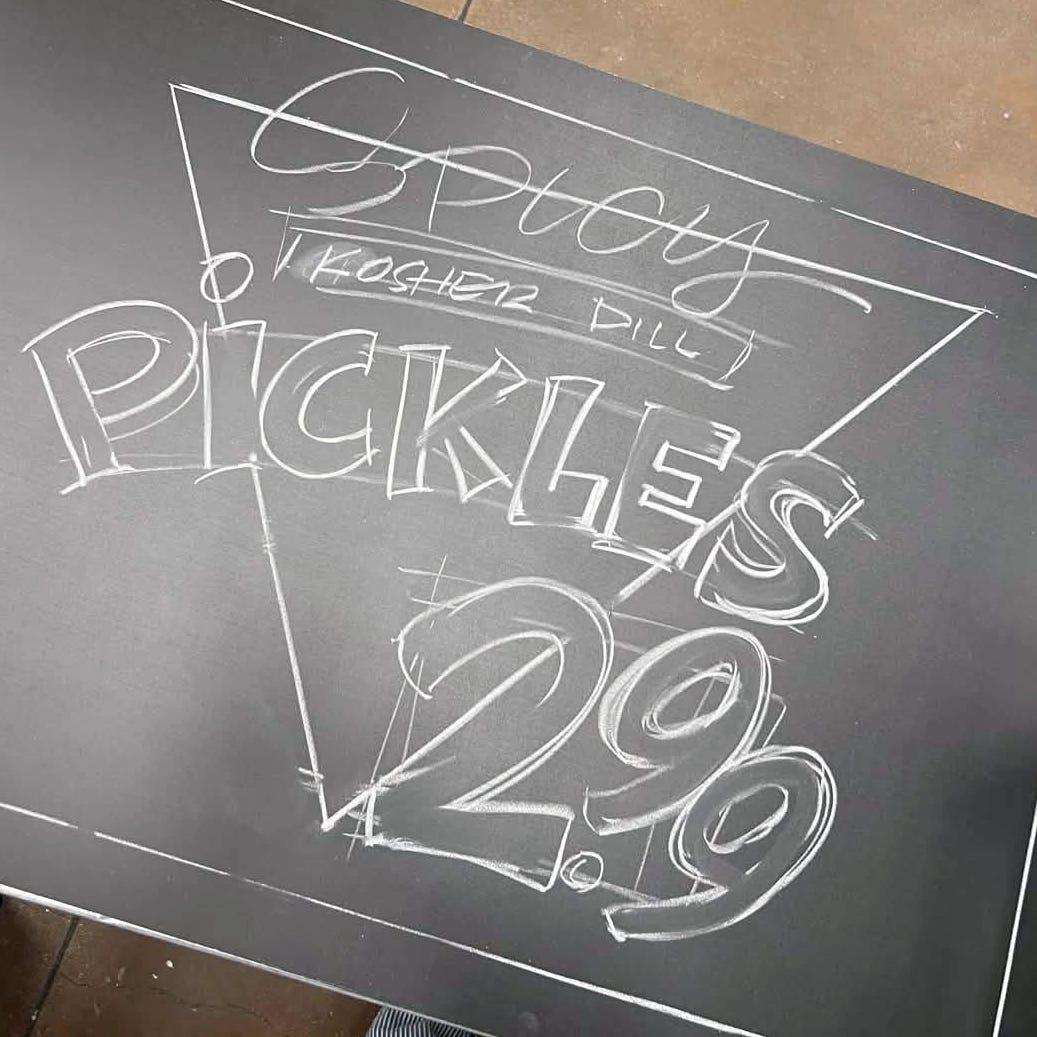 Spicy
KOSHER DILL
PiCKLES
2.99